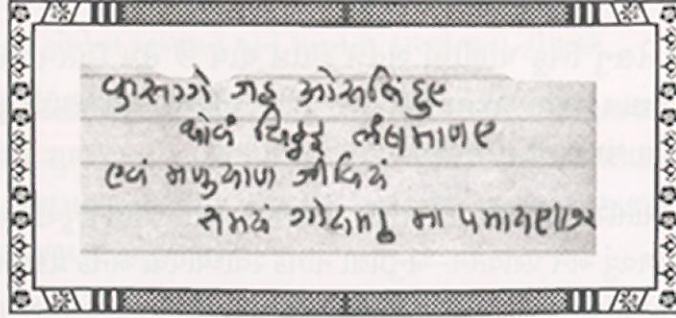 कुसग्गे जह ओसबिंदुए
थोवं चिट्ठइ लंबमाणए
एवं मणुयाण जीवियं
समयं गोयम मा पमायए॥२